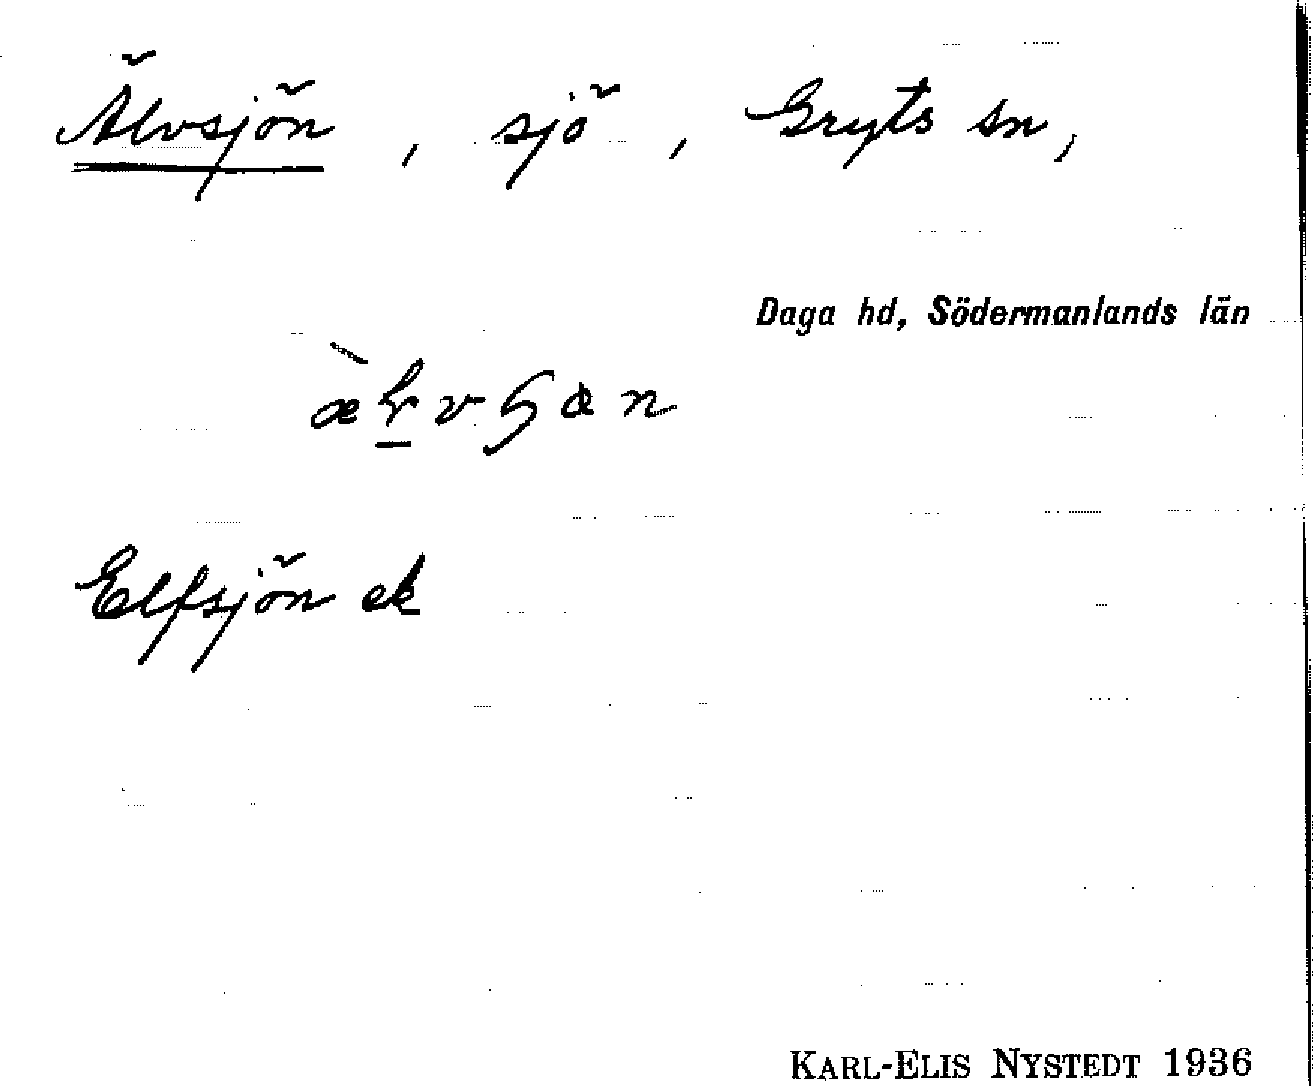 Älvsjön, sjö, Gryts sn,
Daga hd, Södermanlands län
Elfsjön ek
KARL-ELIS NYSTEDT 1936